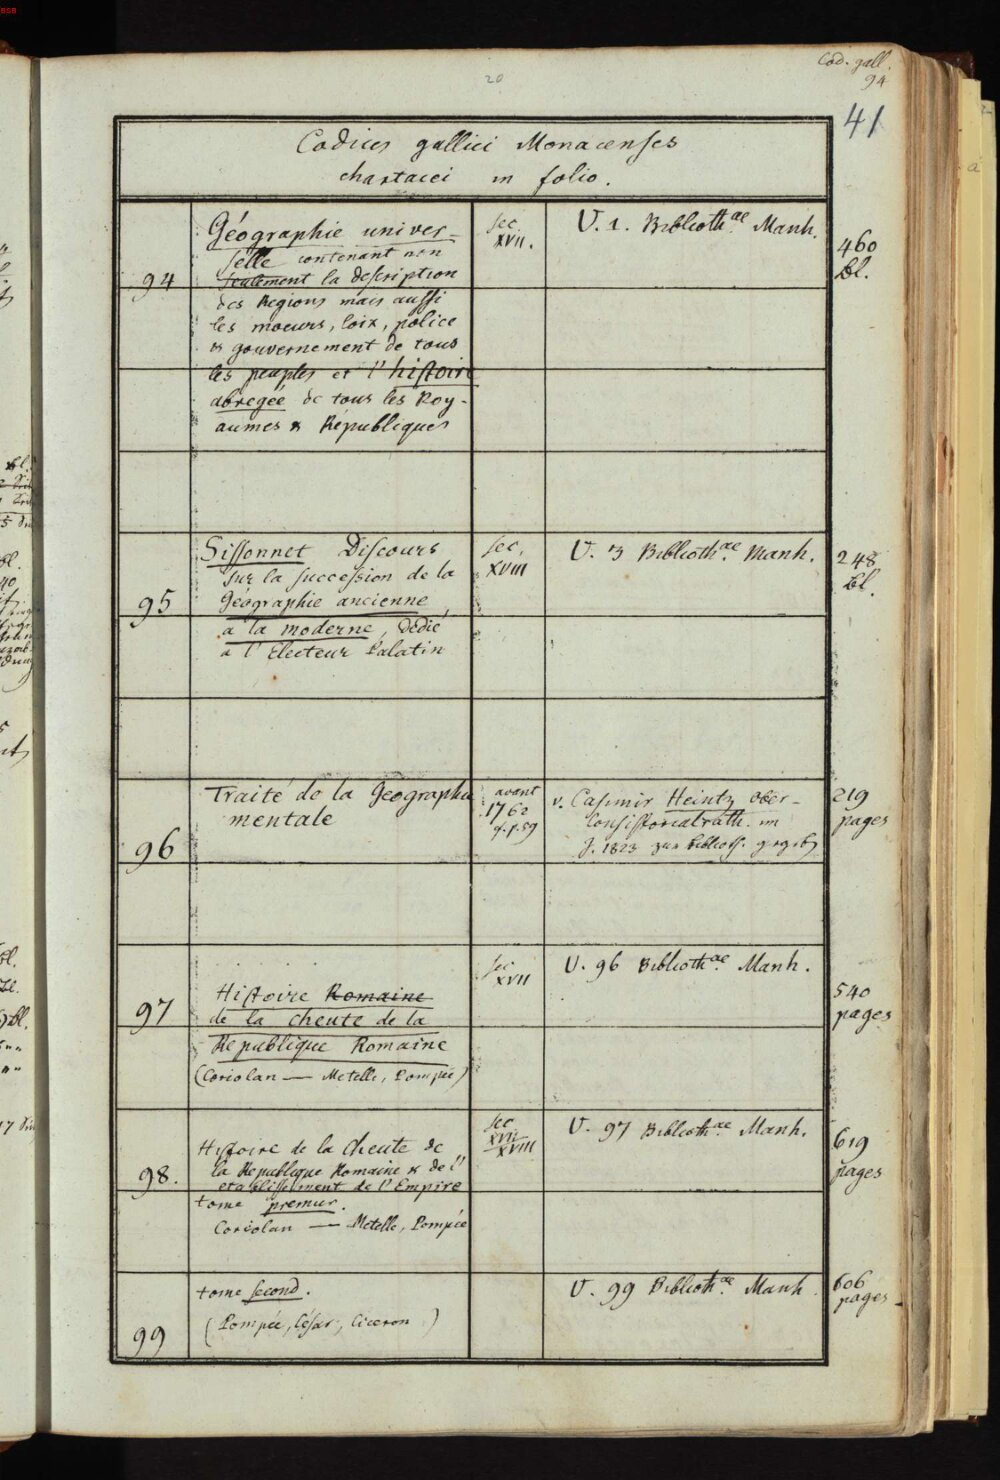 Cod. gall.
94
20
41
Codices gallici Monacenses
chartacei in folio.
94
Géographie univer-
selle contenant non
seulement la description
des Regions mais aussi
les moeurs, loix, police
& gouvernement de tous
les peuples et l'histoire
abregée de tous les Roy-
aumes & Républiques
sec.
XVII.
V. 1. Biblioth.ae Manh.
460
Bl.
95
Sissonnet Discours
sur la succession de la
Géographie ancienne,
a la moderne, Dedié
a l'Electeur Palatin
sec.
XVIII
V. 3 Biblioth.ae Manh.
248
Bl.
96
Traité de la Geographie
mentale
avant
1762
v. Casimir Heintz Ober-
Consistorialrath. im
J. 1823 zur Biblioth. gegeb
219
pages
97
Histoire Romaine
de la cheute de la
Republique Romaine
(Coriolan — Metelle, Pompée)
sec
XVII
V. 96 Biblioth.ae Manh.
540
pages
98.
Histoire de la Cheute de
la Republique Romaine & de l'
etablissement de l'Empire
tome premier.
Coriolan — Metelle, Pompée
sec
XVII
XVIII
V. 97 Biblioth.ae Manh.
619
pages
99
tome second.
(Pompée, César, Ciceron)
V. 99 Biblioth.ae Manh.
606
pages